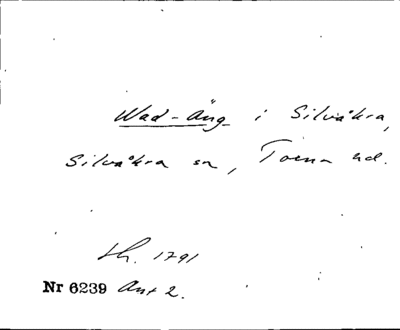 Wad-Äng i Silvåkra,
Silvåkra sn, Torna hd.
th. 1791
Nr 6239 Ant 2.